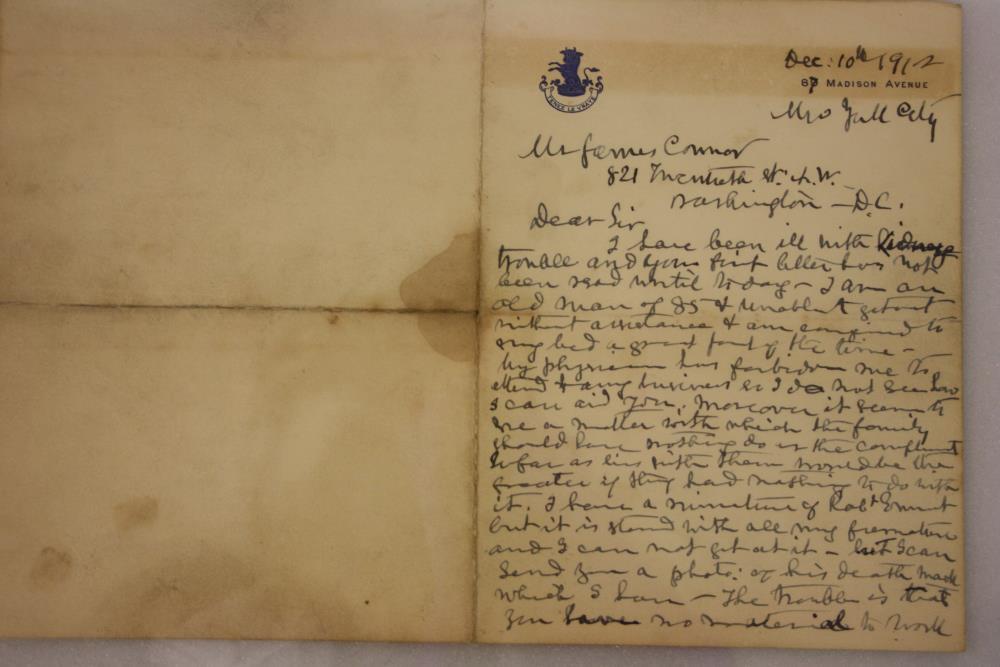 Dec. 10th 1912
TENEZ LE VRAYE
87 MADISON AVENUE
New York City
Mr James Connor
821 Twentieth St. N.W.
Washington - D.C.
Dear Sir
I have been ill with Kidney
trouble and your first letter has not
been read until to day - I am an
old man of 85 & unable to get out
without assistance & am confined to
my bed a great part of the time -
My physician has forbidden me to
attend to any business so I do not see how
I can aid you, moreover it seems to
me a matter with which the family
should have nothing to do as the compliment
so far as lies with them would be the
greater if they had nothing to do with
it. I have a miniature of Robt Emmet
but it is stored with all my furniture
and I can not get at it - but I can
send you a photo: of his death mask
which I have - The trouble is that
you have no material to work